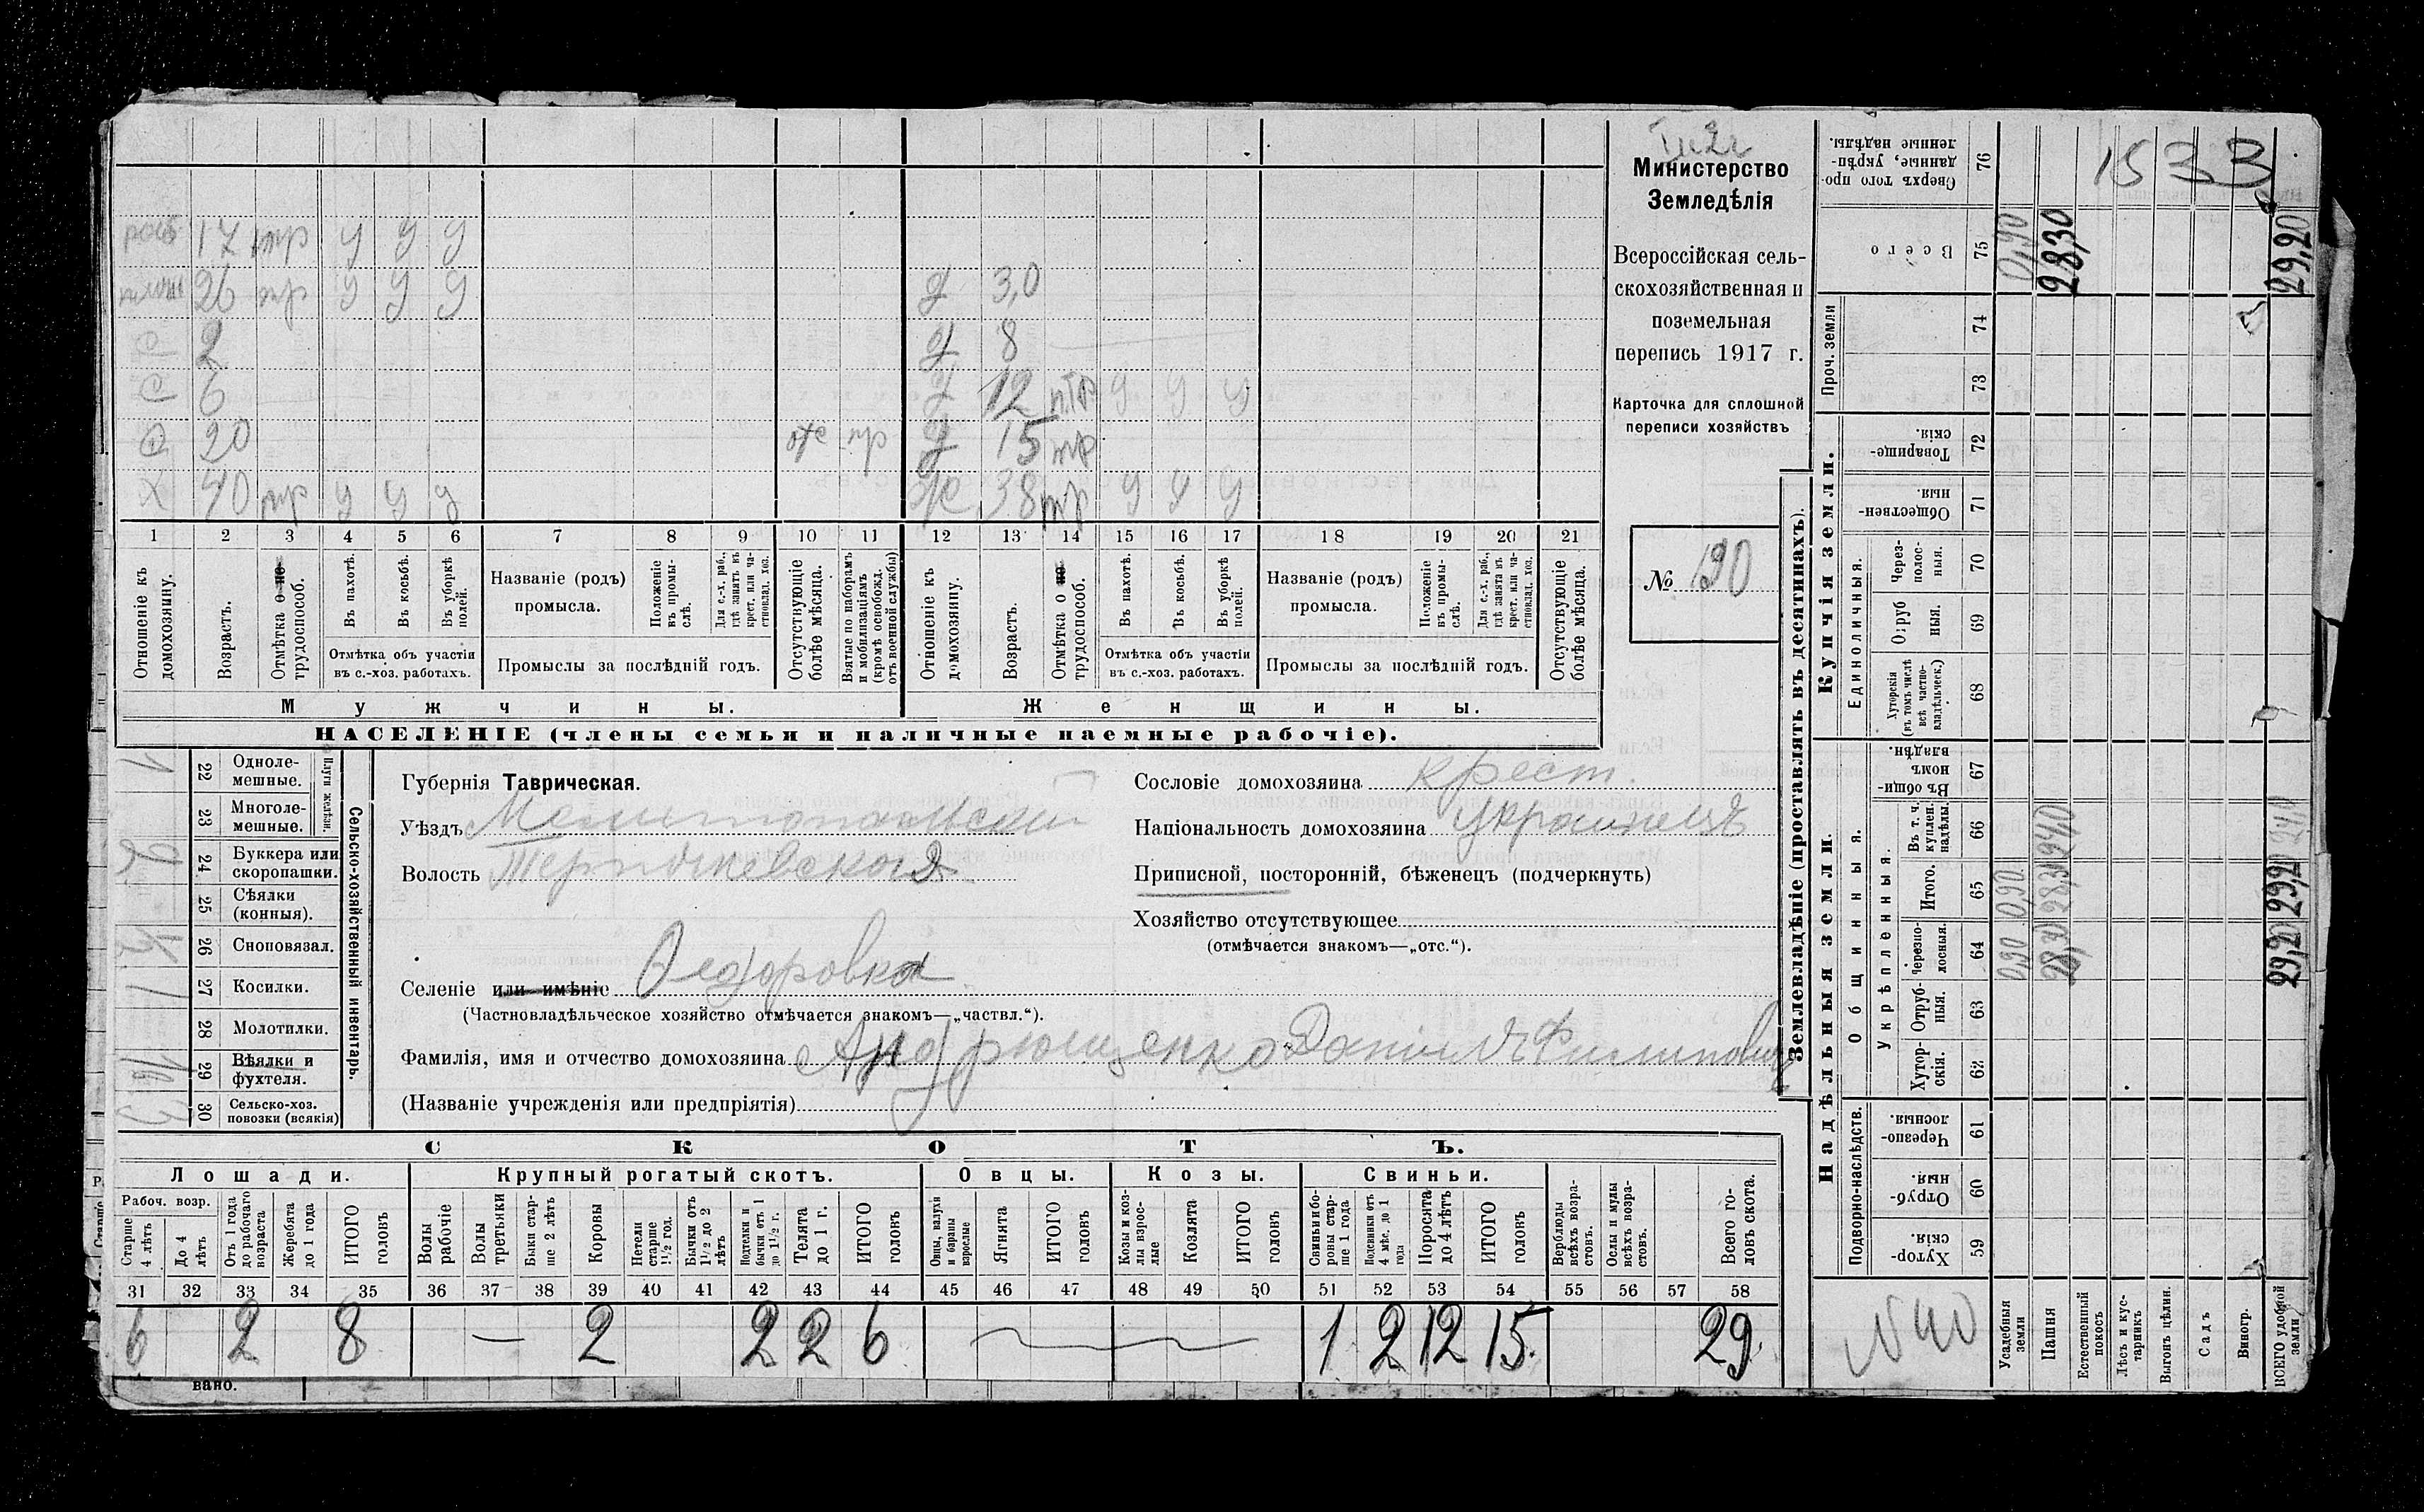 Министерство
Земледѣлія
Всероссійская сель-
скохозяйственная и
поземельная
перепись 1917 г.
Карточка для сплошной
переписи хозяйствъ
№ 190
раб 17 тр у у у
26 тр у у у д 3,0
с 2 д 8
с 6 д 12 птр у у у
с 20 отс пр д 15 тр
х 40 тр у у у ж 38 тр у у у
1 2 3 4 5 6 7 8 9 10 11 12 13 14 15 16 17 18 19 20 21
Отношеніе къ домохозяину.
Возрастъ.
Отмѣтка о не-трудоспособ.
Въ пахотѣ.
Въ косьбѣ.
Въ уборкѣ полей.
Отмѣтка объ участіи
въ с.-хоз. работахъ.
Названіе (родъ)
промысла.
Положеніе въ промы-слѣ.
Для с.-х. раб., гдѣ занятъ въ крест. или ча-стновлад. хоз.
Промыслы за послѣдній годъ.
Отсутствующіе болѣе мѣсяца.
Взятые по наборамъ и мобилизаціямъ (кромѣ освобожд. отъ военной службы)
Отношеніе къ домохозяину.
Возрастъ.
Отмѣтка о не-трудоспособ.
Въ пахотѣ.
Въ косьбѣ.
Въ уборкѣ полей.
Отмѣтка объ участіи
въ с.-хоз. работахъ.
Названіе (родъ)
промысла.
Положеніе въ промы-слѣ.
Для с.-х. раб., гдѣ занята въ крест. или ча-стновлад. хоз.
Промыслы за послѣдній годъ.
Отсутствующіе болѣе мѣсяца.
Мужчины. Женщины.
НАСЕЛЕНІЕ (члены семьи и наличные наемные рабочіе).
Сельско-хозяйственный инвентарь.
Плуги желѣзн.
22 Одноле-мешные. 1
23 Многоле-мешные.
24 Буккера или скоропашки. 2
25 Сѣялки (конныя).
26 Сноповязал. 1/2
27 Косилки. 1
28 Молотилки.
29 Вѣялки и фухтеля.
30 Сельско-хоз. повозки (всякія)
Губернія Таврическая.
Уѣздъ Мелитопольскій
Волость
Селеніе или имѣніе Федоровка
(Частновладѣльческое хозяйство отмѣчается знакомъ—„частвл.“).
Фамилія, имя и отчество домохозяина Андрющенко Данiилъ Филиповичъ
(Названіе учрежденія или предпріятія)
Сословіе домохозяина крест.
Національность домохозяина украинецъ
Приписной, посторонній, бѣженецъ (подчеркнуть)
Хозяйство отсутствующее
(отмѣчается знакомъ—„отс.“).
СКОТЪ.
Лошади. Крупный рогатый скотъ. Овцы. Козы. Свиньи.
Рабоч. возр.
Старше 4 лѣтъ
До 4 лѣтъ
Отъ 1 года до рабочаго возраста
Жеребята до 1 года
ИТОГО головъ
Волы рабочіе
Волы третьяки
Быки стар-ше 2 лѣтъ
Коровы
Нетели старше 1½ год.
Бычки отъ 1½ до 2 лѣтъ
Подтелки и бычки отъ 1 до 1½ г.
Телята до 1 г.
ИТОГО головъ
Овцы, валухи и бараны взрослые
Ягнята
ИТОГО головъ
Козы и коз-лы взрос-лые
Козлята
ИТОГО головъ
Свиньи и бо-ровы стар-ше 1 года
Подсвинки отъ 4 мѣс. до 1 года
Поросята до 4 лѣтъ
ИТОГО головъ
Верблюды всѣхъ возра-стовъ.
Ослы и мулы всѣхъ возра-стовъ.
Всего го-ловъ скота.
31 32 33 34 35 36 37 38 39 40 41 42 43 44 45 46 47 48 49 50 51 52 53 54 55 56 57 58
6 2 8 — 2 2 2 6 1 2 12 15 29
вано.
Землевладѣніе (проставлять въ десятинахъ).
Надѣльныя земли. Купчія земли. Проч. земли
Подворно-наслѣдств.
Общинныя.
Укрѣпленныя.
Единоличныя.
59 Хутор-скія.
60 Отруб-ныя.
61 Черезпо-лосныя.
62 Хутор-скія.
63 Отруб-ныя.
64 Черезпо-лосныя. 0,90 28,30 29,20
65 Итого. 0,90 28,30 29,20
66 Въ т. ч. куплен. надѣлы. 2410 2410
67 Въ общи-номъ владѣн.
68 Хуторскія (въ томъ числѣ всѣ частно-владѣльческ.)
69 Отруб-ныя.
70 Через-полос-ныя.
71 Обществен-ныя.
72 Товарище-скія.
73
74
75 Всего 0,90 28,30 29,20
76 Сверхъ того про-данные, укрѣп-ленные надѣлы.
1533
N 40
Усадебныя земли
Пашня
Естественный покосъ
Лѣсъ и кус-тарникъ
Выгонъ цѣлин.
Садъ
Виногр.
ВСЕГО удобной земли